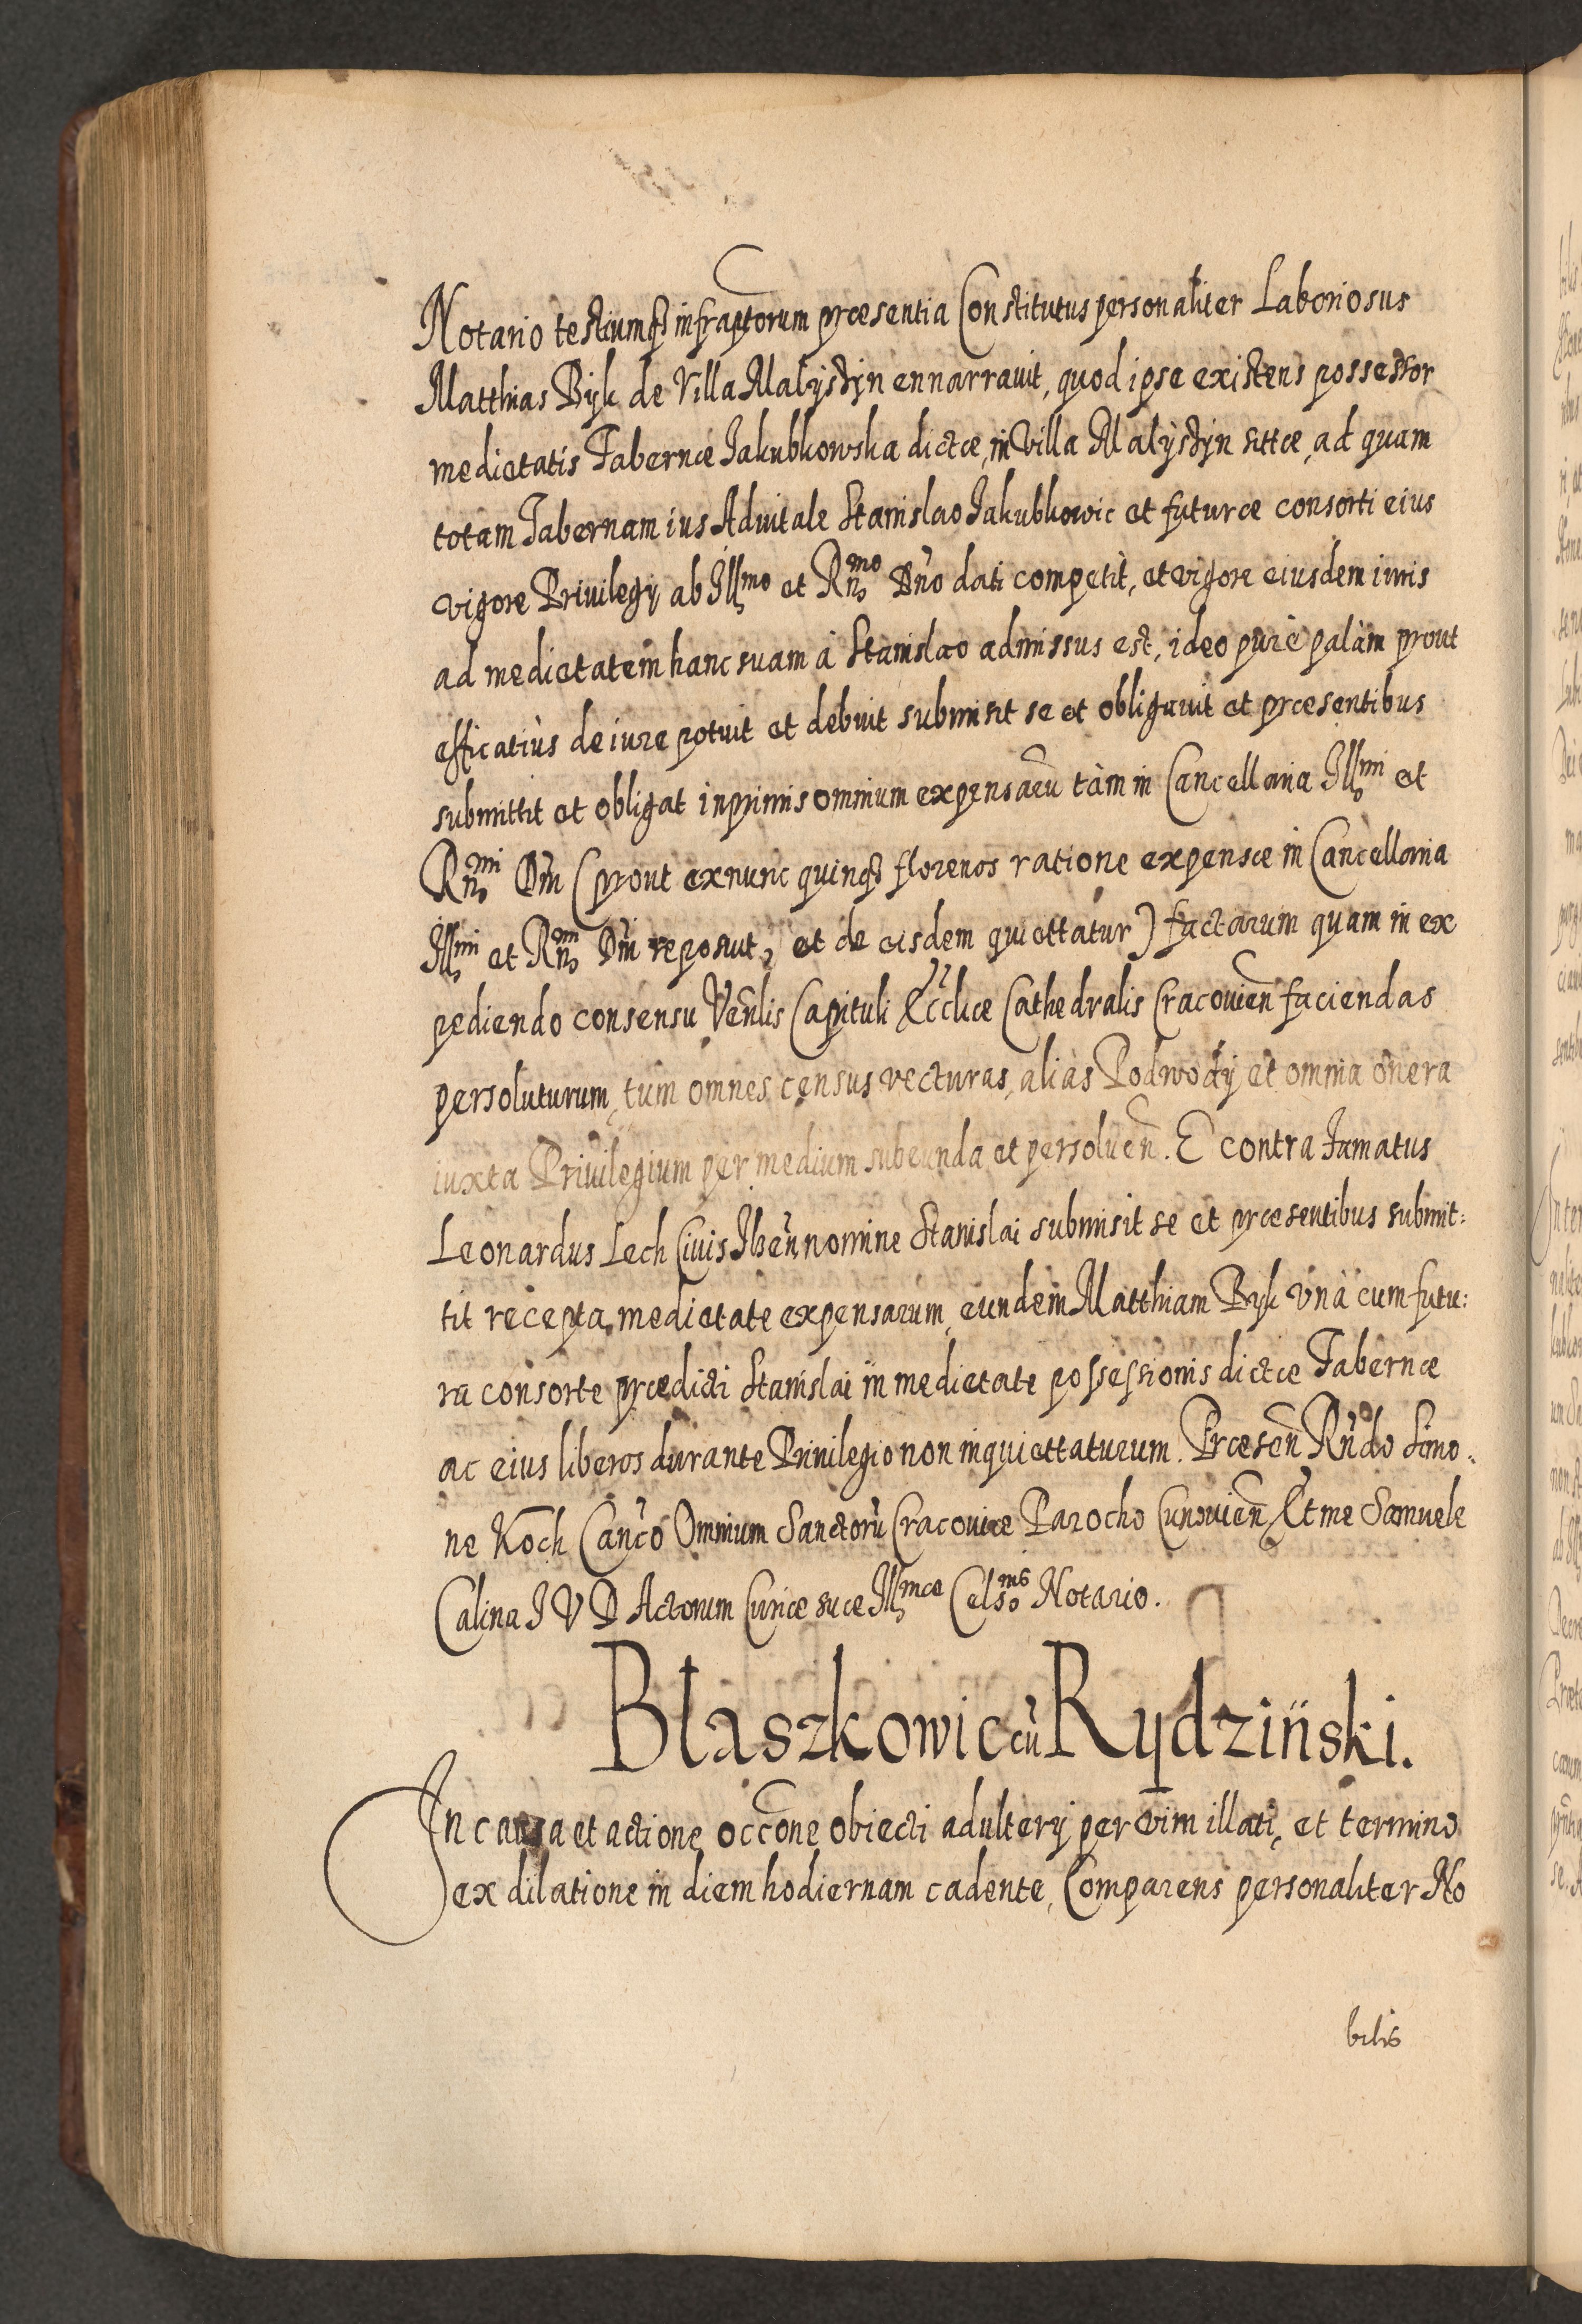 Notario testiumq̃ infraptorum præsentia Constitutus personaliter Laboriosus
Matthias Byk de Villa Malystyn ennarrauit, quod ipse existens possessor
medietatis Tabernæ Jakubkowska dictæ, in Villa Malystyn sittæ, ad quam
totam Tabernam ius Aduitale Stanislao Jakubkowic et futuræ consorti eius
vigore Priuilegÿ ab Illmo et Rndmo Dño dati competit, et vigore eiusdem iuris
ad medietatem hanc suam à Stanislao admissus est, ideo purè palàm prout
efficatiùs de iure potuit et debuit submisit se et obligauit et præsentibus
submittit et obligat inprimis omnium expensarũ tàm in Cancellaria Illmi et
Rndmi Dñi (prout exnunc quinq̃ florenos ratione expensæ in Cancellaria
Illmi et Rndmi Dñi reposuit, et de eisdem quiettatur) factarum quam in ex
pediendo consensu Veñlis Capituli Eccliæ Cathedralis Cracouieñ faciendas
persoluturum, tum omnes census vecturas, alias Podwody et omnia onera
iuxta Priuilegium per medium subeunda et persolueñ. E contra Famatus
Leonardus Lech Ciuis Ilzeñ nomine Stanislai submisit se et præsentibus submit:
tit recepta medietate expensarum, eundem Matthiam Byk vnà cum futu:
ra consorte prædicti Stanislai in medietate possessionis dictæ Tabernæ
ac eius liberos durante Priuilegio non inquiettaturum. Præseñ Rñdo Simo:
ne Koch Cañco Omnium Sanctorũ Cracouiæ Parocho Cunouieñ Et me Samuele
Calina J V D Actorum Curiæ suæ Illmæ Celsnis Notario.
Błaszkowic cũ Rydziński.
In causa et actione occõne obiecti adulterÿ per vim illati, et termino
ex dilatione in diem hodiernam cadente, Comparens personaliter No
bilis